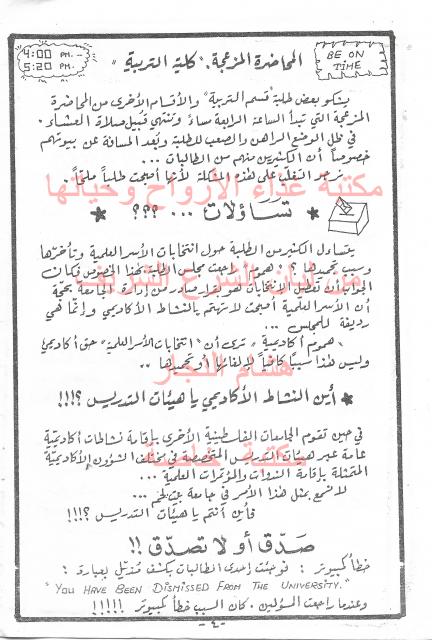 4:00 PM. --
5:20 PM.
المحاضرة المزعجة. "كلية التربية"
BE ON
TIME
يشكو بعض طلبة "قسم التربية" والأقسام الأخرى من المحاضرة
المزعجة التي تبدأ الساعة الرابعة مساءً وتنتهي قبيل صلاة العشاء.
في ظل الوضع الراهن والصعب للطلبة وبُعد المسافة عن بيوتهم
خصوصاً أن الكثيرين منهم من الطالبات ...
نرجو التغلب على هذه المشكلة لأنها أصبحت طلباً ملحّاً.
مكتبة غذاء الأرواح وحياتها
* تساؤلات ... ؟؟؟ *
يتساءل الكثير من الطلبة حول انتخابات الأسر العلمية وتأخرها
وسبب تجميدها ؟
من لبان الشرع الشريف
الجواب أن تعطيل الانتخابات هو بقرار صادر من إدارة الجامعة بحجة
أن الأسر العلمية أصبحت لا تهتم بالنشاط الأكاديمي وإنما هي
رديفة للمجلس ...
"هموم أكاديمية" ترى أن "انتخابات الأسر العلمية" حق أكاديمي
وليس هذا سبباً كافياً لإلغائها أو تجميدها ..
هشام النجار
* أين النشاط الأكاديمي يا هيئات التدريس ؟!!!
في حين تقوم الجامعات الفلسطينية الأخرى بإقامة نشاطات أكاديمية
عامة عبر هيئات التدريس المتخصصة في مختلف الشؤون الأكاديمية
مكتبة خاصة
المتمثلة بإقامة الندوات والمؤتمرات العلمية ...
لا نسمع بمثل هذا الأمر في جامعة بيت لحم ...
فأين أنتم يا هيئات التدريس ؟!!!
صَدّق أو لا تصدّق !!
خطأ كمبيوتر : فوجئت إحدى الطالبات بكشف مُذيّل بعبارة :
"YOU HAVE BEEN DISMISSED FROM THE UNIVERSITY."
وعندما راجعت المسؤولين . كان السبب خطأ كمبيوتر !!!!!
-٤-